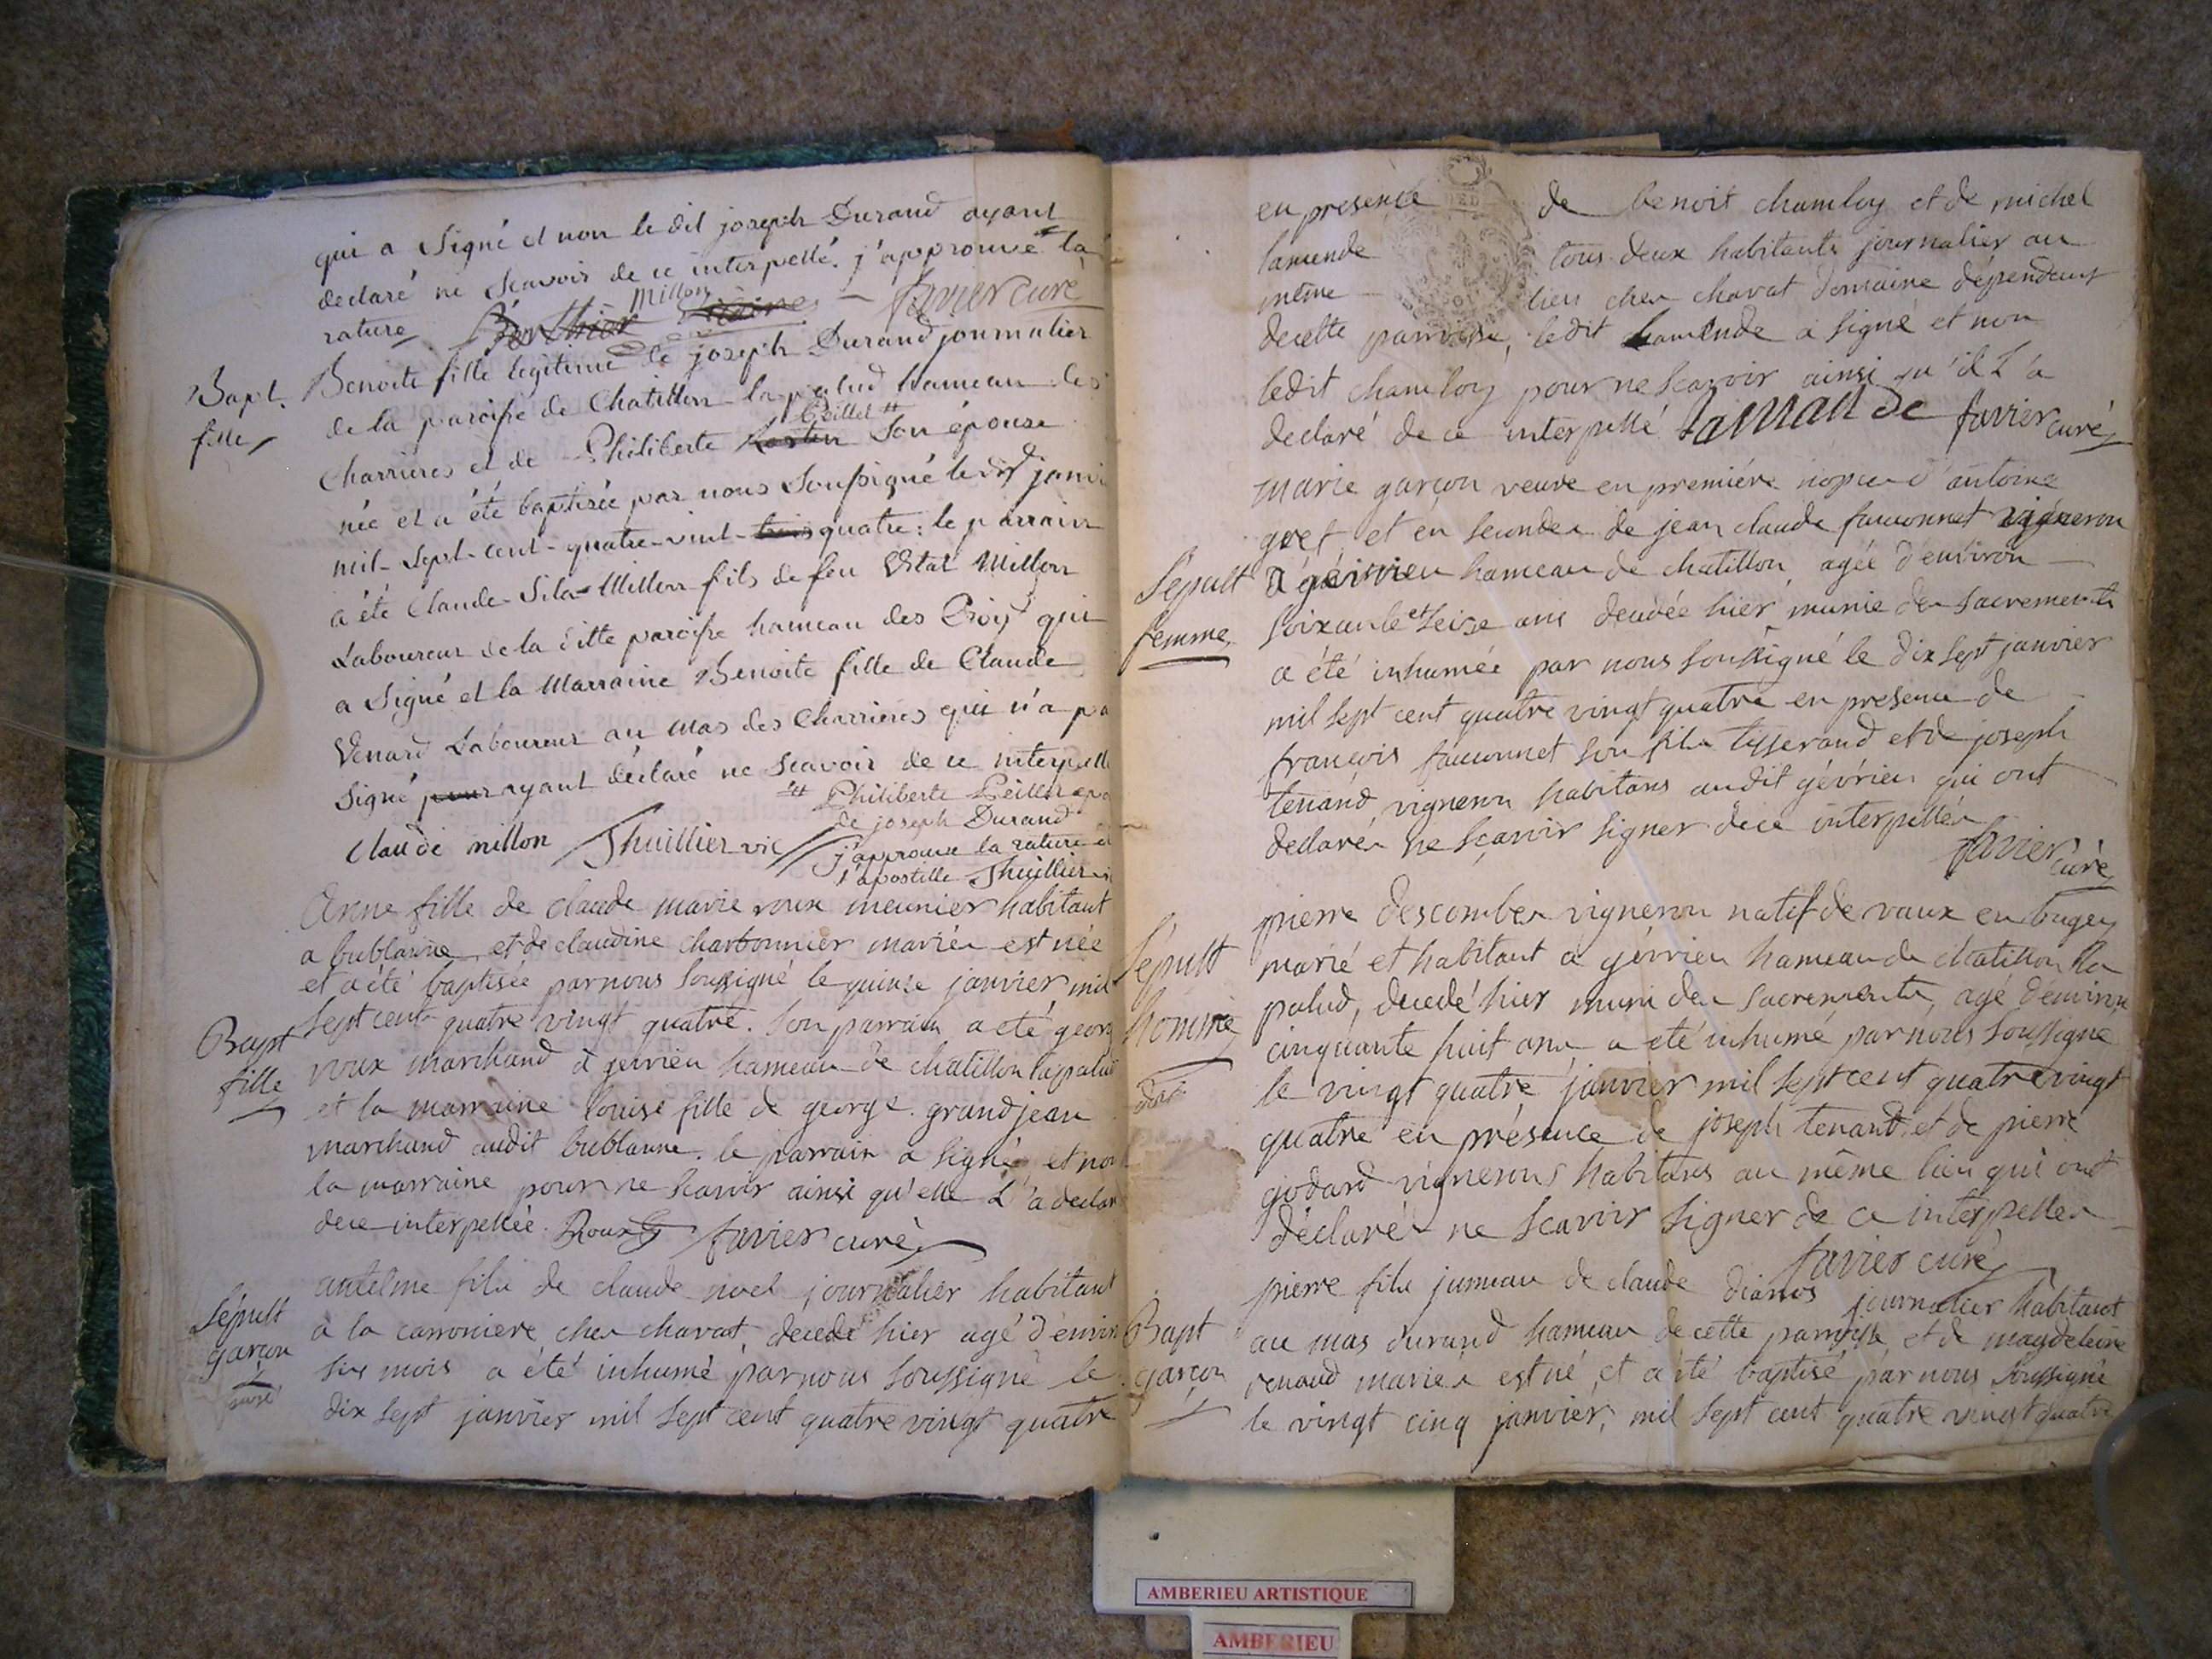 qui a Signé et non le dit joseph Durand ayant
declaré ne Scavoir de ce interpellé. j'approuve la
rature Millon favier curé
Bapt.
fille
Benoite fille legitime de joseph Durand journalier
de la paroisse de Chatillon-la-palud hameau des
Peillet #
Charrieres et de Philiberte Son épouse
née et a été baptisée par nous Soussigné le dix janvi
mil-Sept-cent-quatre-vint-trois quatre: le parrain
a été Claude-Millon fils de feu Vital Millon
Laboureur de la ditte paroisse hameau des qui
a Signé et la Marraine Benoite fille de Claude
Venard Laboureur au mas des Charrieres qui n'a pa
Signé pour ayant déclaré ne Scavoir de ce interpelle
# Philiberte Peillet epo
de joseph Durand
Claude millon Thuillier vic
j'approuve la rature et
l'apostille Thuillier vi
Bapt
fille
Anne fille de claude marie roux meunier habitant
a bublanne, et de claudine charbonnier mariés est née
et a été baptisée par nous soussigné le quinze janvier mil
sept cent quatre vingt quatre. son parrain a eté georg
roux marchand à gevrieu hameau de chatillon lapalud
et la marraine louise fille de george grandjean
marchand audit bublanne. le parrain a signé et non
la marraine pour ne scavoir ainsi qu'elle l'a declar
de ce interpellée. Roux favier curé
Sépult
garçon
anthelme fils de claude noel journalier habitant
à la carroniere ches chavat, decedé hier agé d'envir
six mois a été inhumé par nous soussigné le
dix sept janvier mil sept cent quatre vingt quatre
en presence de benoit chamloy et de michel
lamende tous deux habitants journalier au
même lieu ches chavat domaine dépendant
de cette parroisse, ledit lamende a signé et non
ledit chamloy pour ne scavoir ainsi qu'il l'a
declaré de ce interpellé lamande favier curé
Sépult
femme
marie garçon veuve en premiére nopces d'antoine
gret et en secondes de jean claude fauconnet vigneron
à gévrieu hameau de chatillon, agée d'environ
soixante et seize ans decedée hier munie des sacrements
a été inhumée par nous soussigné le dix sept janvier
mil sept cent quatre vingt quatre en presence de
françois fauconnet son fils tisserand et de joseph
tenand, vigneron habitans audit gévrieu qui ont
declarés ne sçavoir signer de ce interpellés
favier curé
Sépult
homme
pierre descombes vigneron natif de vaux en bugey
marié et habitant à gévrieu hameau de chatillon la
palud, decedé hier muni des sacrements, agé d'environ
cinquante huit ans a eté inhumé par nous soussigné
le vingt quatre janvier mil sept cent quatre vingt
quatre en présence de joseph tenand et de pierre
godard vignerons habitans au même lieu qui ont
déclarés ne scavoir signer de ce interpellés
favier curé
Bapt
garçon
pierre fils jumeau de claude journalier habitant
au mas durand hameau de cette parroisse, et de magdeleine
renaud mariés est né et a été baptisé par nous soussigné
le vingt cinq janvier, mil sept cent quatre vingt quatre
AMBERIEU ARTISTIQUE
AMBERIEU